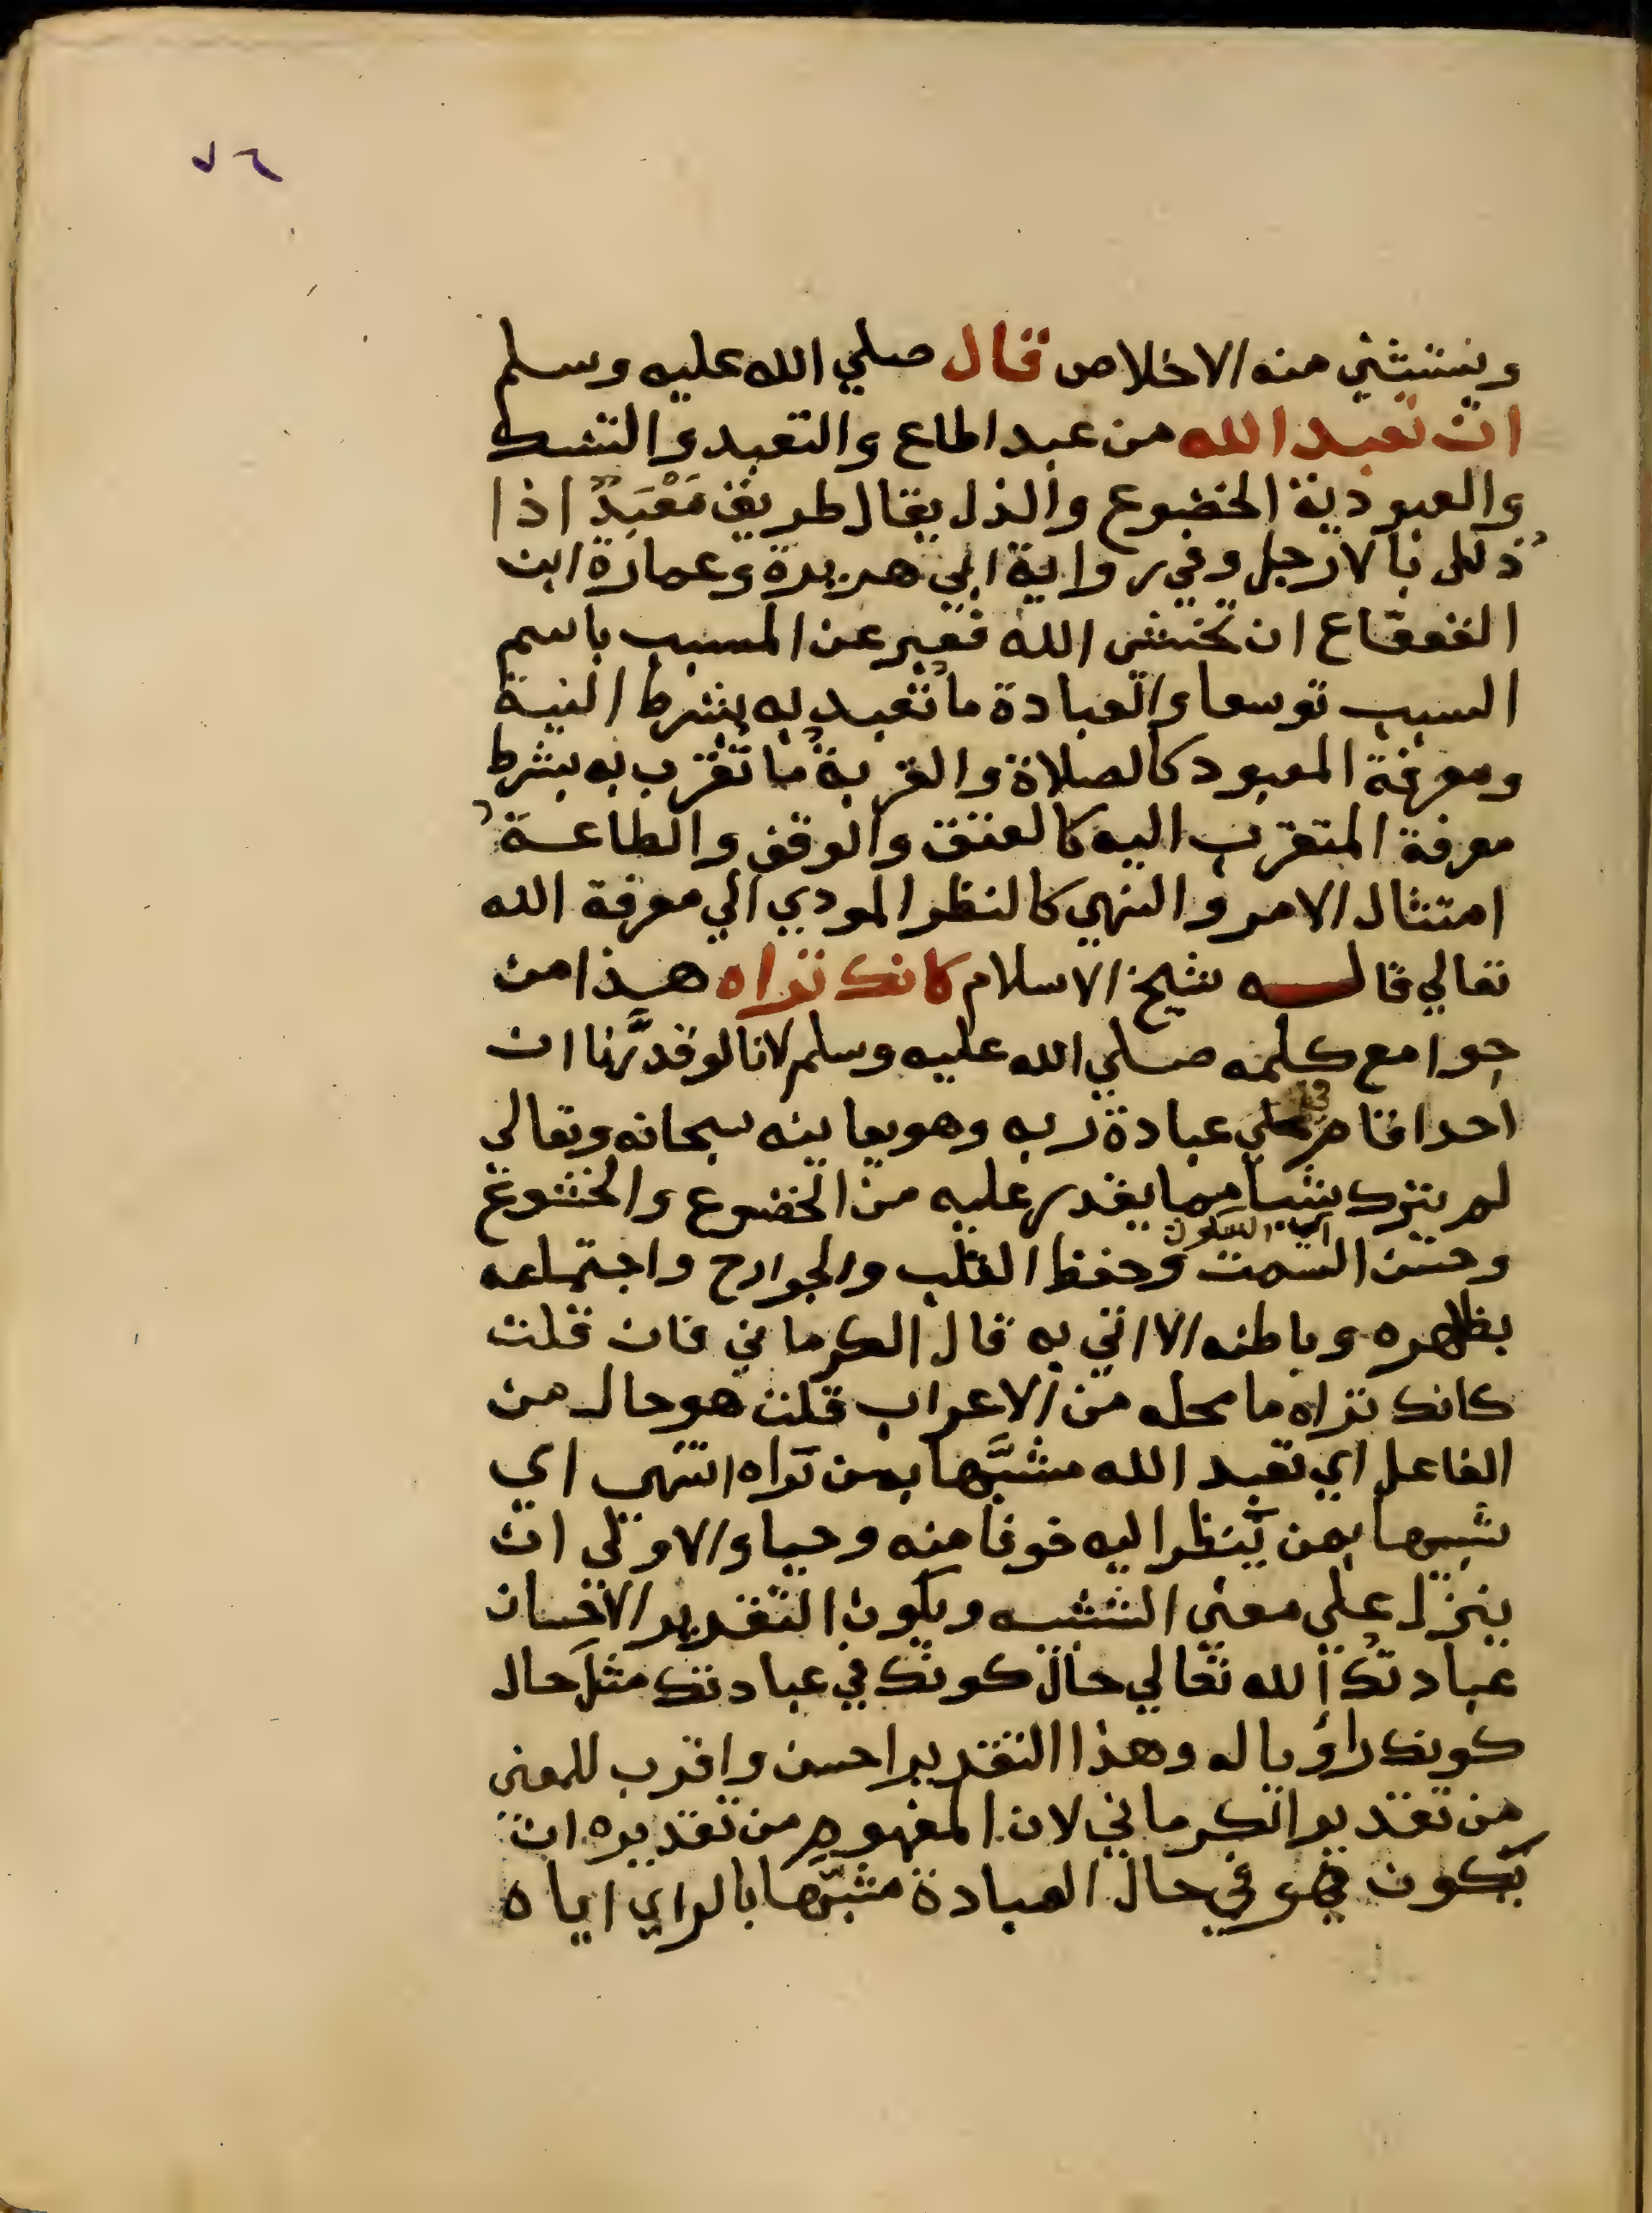 ٧٦
ويستثني منه الاخلاص قال صلي الله عليه وسلم
ان تعبد الله من عبد اطاع والتعبد والتنسك
والعبودية الخضوع والذل يقال طريق مَعْبَدٌ اذا
ذلل بالارجل وفي رواية ابي هريرة وعمارة ابن
القعقاع ان تخشي الله فعبر عن المسبب باسم
السبب توسعا والعبادة ما تعبد به بشرط النية
ومعرفة المعبود كالصلاة والقربة ما تقرب به بشرط
معرفة المتقرب اليه كالعتق والوقف والطاعة
امتثال الامر والنهي كالنظر المودي الي معرفة الله
تعالي قال شيخ الاسلام كانك تراه هذا من
جوامع كلمه صلي الله عليه وسلم لانا لو قدَّرنا ان
احدا قام في عبادة ربه وهو يعاينه سبحانه وتعالي
لم يترك شيا مما يقدر عليه من الخضوع والخشوع
اي السكون
وحسن السمت وحفظ القلب والجوارح واجتماعه
بظاهره وباطنه الا اتي به قال الكرماني فان قلت
كانك تراه ما محله من الاعراب قلت هو حال من
الفاعل اي تعبد الله مشبَّها بمن تراه انتهي اي
شبيها بمن ينظر اليه خوفا منه وحيا والاولي ان
ينزل علي معني التشبه ويكون التقدير الاحسان
عبادتك الله تعالي حال كونك في عبادتك مثل حال
كونك راويا له وهذا التقدير احسن واقرب للمعني
من تقدير الكرماني لان المفهوم من تقديره ان
يكون هو في حال العبادة مشبّها بالراي اياه